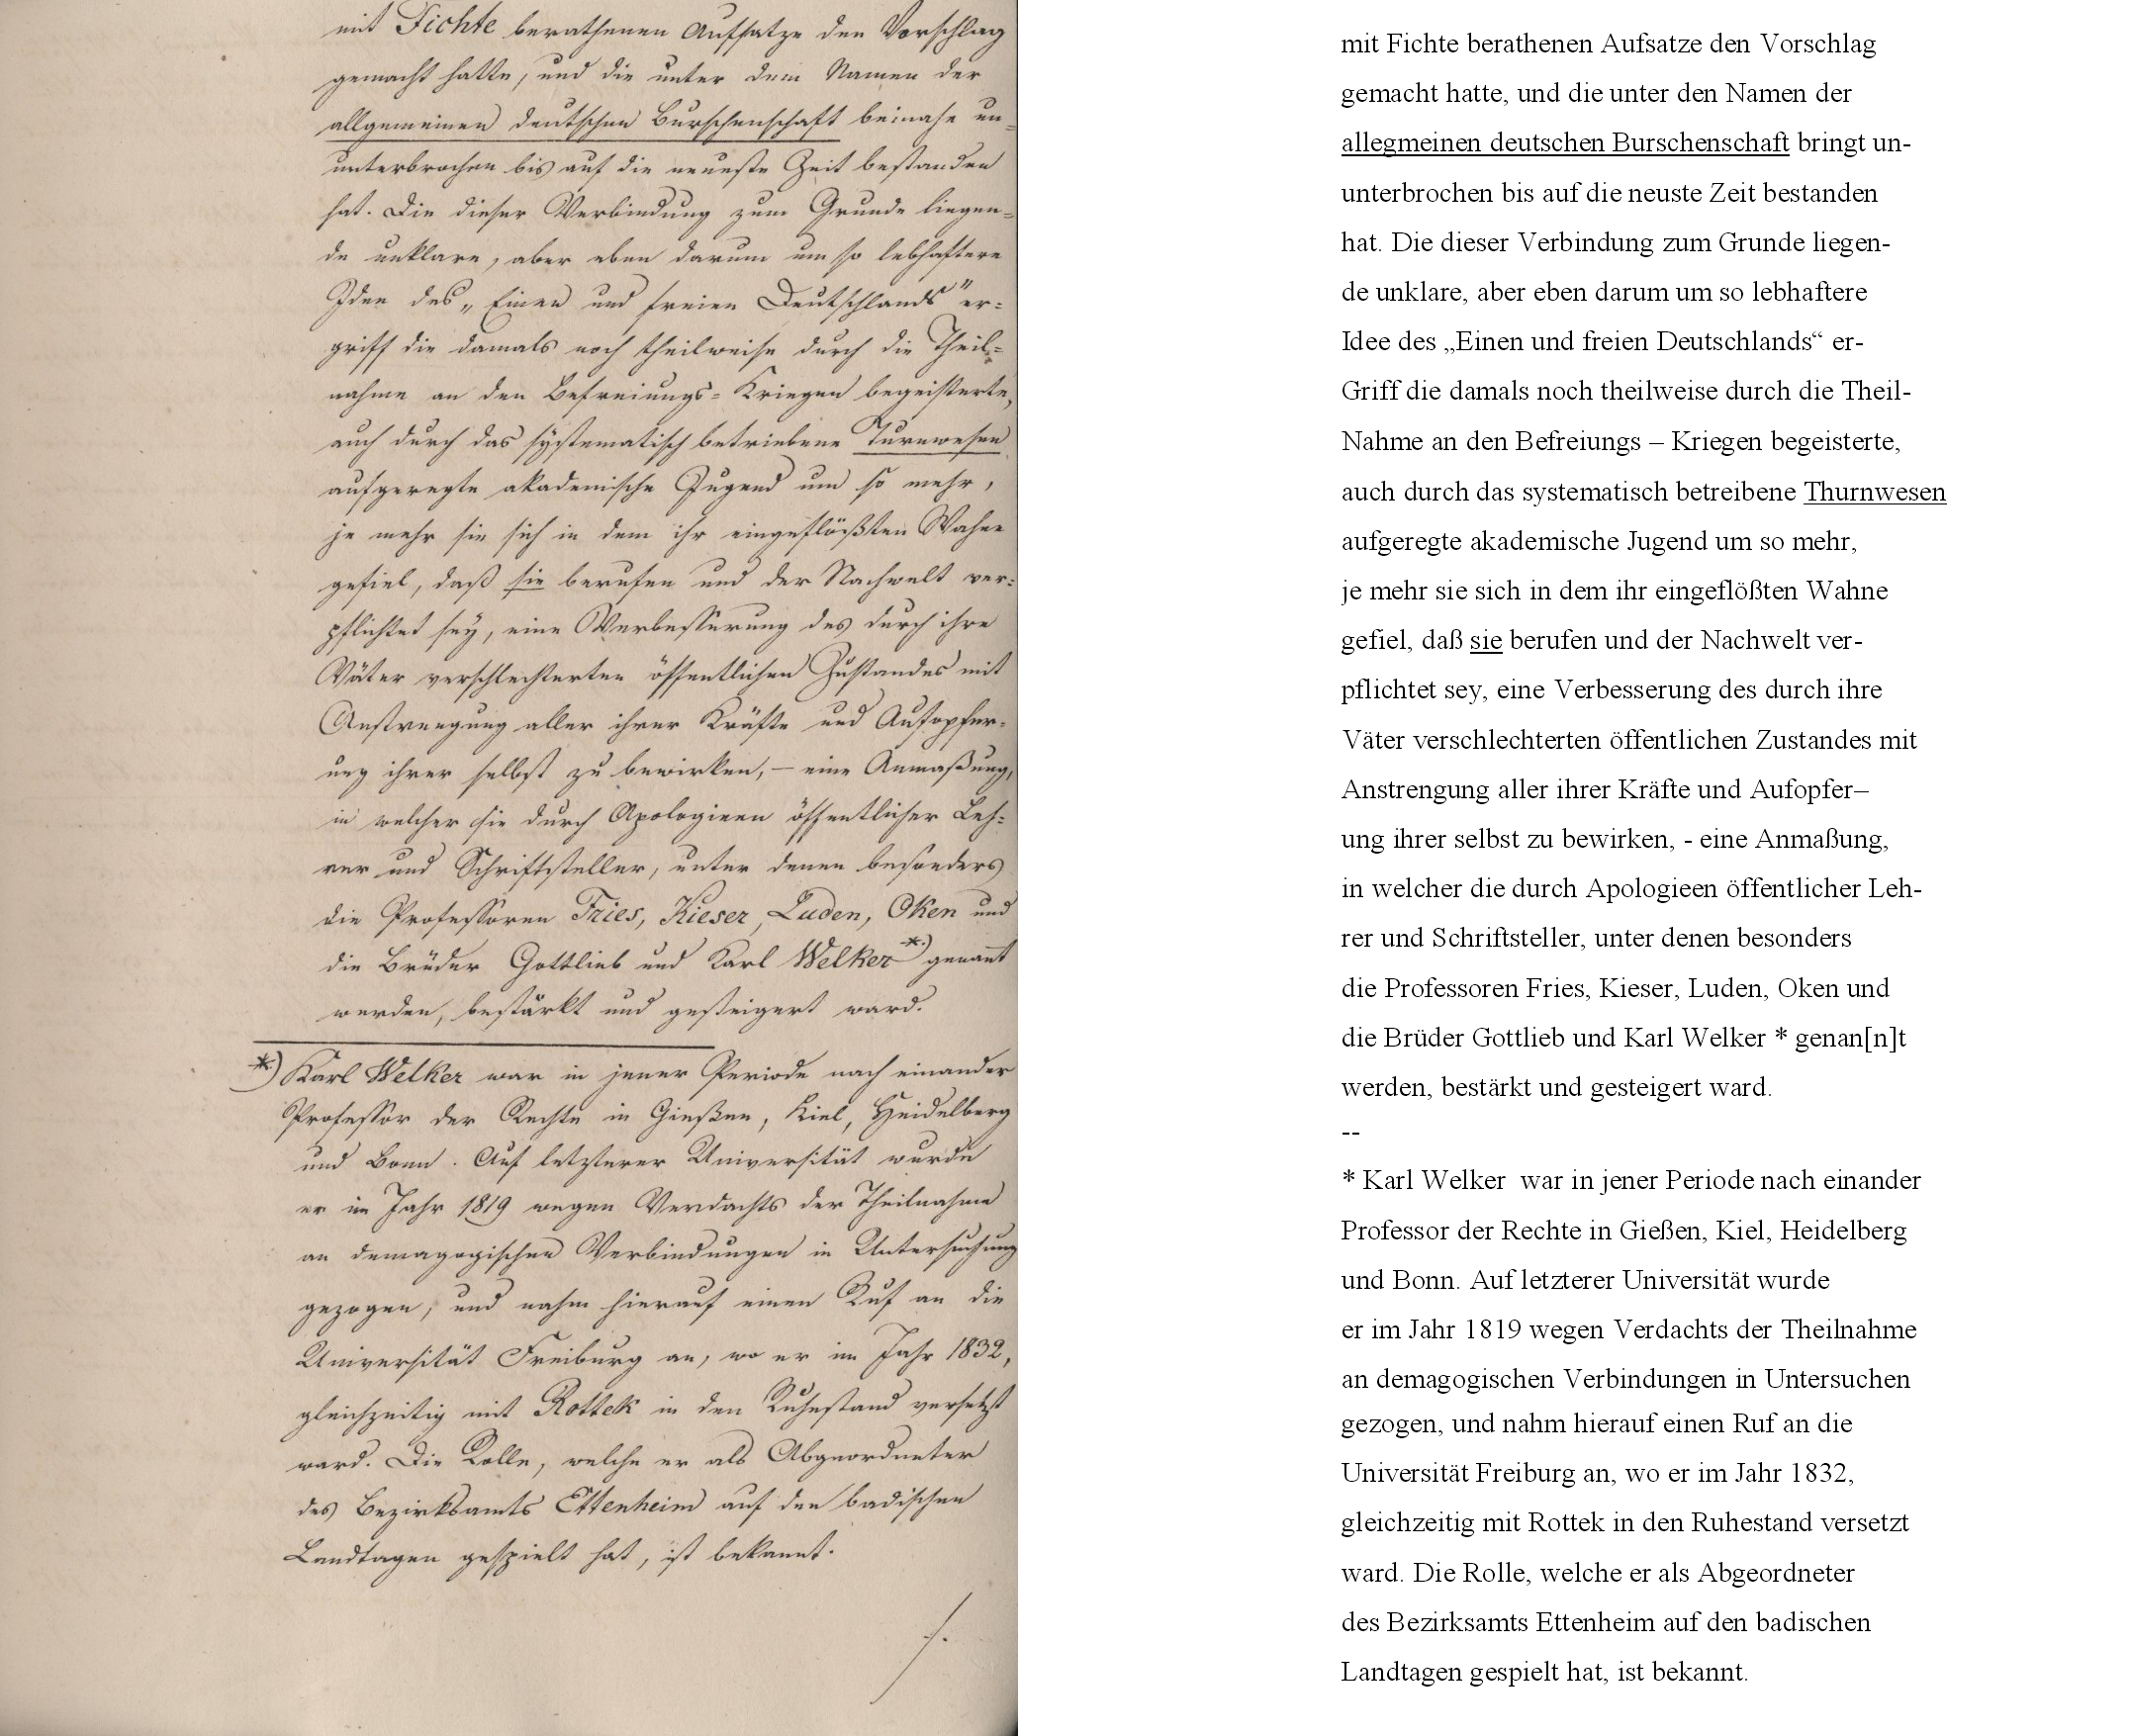 mit Fichte berathenen Aufsatze den Vorschlag
gemacht hatte, und die unter dem Namen der
allgemeinen deutschen Burschenschaft beinahe un-
unterbrochen bis auf die neueste Zeit bestanden
hat. Die dieser Verbindung zum Grunde liegen-
de unklare, aber eben darum um so lebhaftere
Idee des „Einen und freien Deutschlands“ er-
griff die damals noch theilweise durch die Theil-
nahme an den Befreiungs-Kriegen begeisterte,
auch durch das systematisch betriebene Turnwesen
aufgeregte akademische Jugend um so mehr,
je mehr sie sich in dem ihr eingeflößten Wahne
gefiel, daß sie berufen und der Nachwelt ver-
pflichtet sey, eine Verbesserung des durch ihre
Väter verschlechterten öffentlichen Zustandes mit
Anstrengung aller ihrer Kräfte und Aufopfer-
ung ihrer selbst zu bewirken, – eine Anmaßung,
in welcher sie durch Apologieen öffentlicher Leh-
rer und Schriftsteller, unter denen besonders
die Professoren Fries, Kieser, Luden, Oken und
die Brüder Gottlieb und Karl Welker *) genan̄t
werden, bestärkt und gesteigert ward.
*) Karl Welker war in jener Periode nach einander
Professor der Rechte in Gießen, Kiel, Heidelberg
und Bonn. Auf letzterer Universität wurde
er im Jahr 1819 wegen Verdachts der Theilnahme
an demagogischen Verbindungen in Untersuchung
gezogen, und nahm hierauf einen Ruf an die
Universität Freiburg an, wo er im Jahr 1832,
gleichzeitig mit Rottek in den Ruhestand versetzt
ward. Die Rolle, welche er als Abgeordneter
des Bezirksamts Ettenheim auf den badischen
Landtagen gespielt hat, ist bekannt.
mit Fichte berathenen Aufsatze den Vorschlag
gemacht hatte, und die unter den Namen der
allegmeinen deutschen Burschenschaft bringt un-
unterbrochen bis auf die neuste Zeit bestanden
hat. Die dieser Verbindung zum Grunde liegen-
de unklare, aber eben darum um so lebhaftere
Idee des „Einen und freien Deutschlands“ er-
Griff die damals noch theilweise durch die Theil-
Nahme an den Befreiungs – Kriegen begeisterte,
auch durch das systematisch betreibene Thurnwesen
aufgeregte akademische Jugend um so mehr,
je mehr sie sich in dem ihr eingeflößten Wahne
gefiel, daß sie berufen und der Nachwelt ver-
pflichtet sey, eine Verbesserung des durch ihre
Väter verschlechterten öffentlichen Zustandes mit
Anstrengung aller ihrer Kräfte und Aufopfer–
ung ihrer selbst zu bewirken, - eine Anmaßung,
in welcher die durch Apologieen öffentlicher Leh-
rer und Schriftsteller, unter denen besonders
die Professoren Fries, Kieser, Luden, Oken und
die Brüder Gottlieb und Karl Welker * genan[n]t
werden, bestärkt und gesteigert ward.
--
* Karl Welker war in jener Periode nach einander
Professor der Rechte in Gießen, Kiel, Heidelberg
und Bonn. Auf letzterer Universität wurde
er im Jahr 1819 wegen Verdachts der Theilnahme
an demagogischen Verbindungen in Untersuchen
gezogen, und nahm hierauf einen Ruf an die
Universität Freiburg an, wo er im Jahr 1832,
gleichzeitig mit Rottek in den Ruhestand versetzt
ward. Die Rolle, welche er als Abgeordneter
des Bezirksamts Ettenheim auf den badischen
Landtagen gespielt hat, ist bekannt.